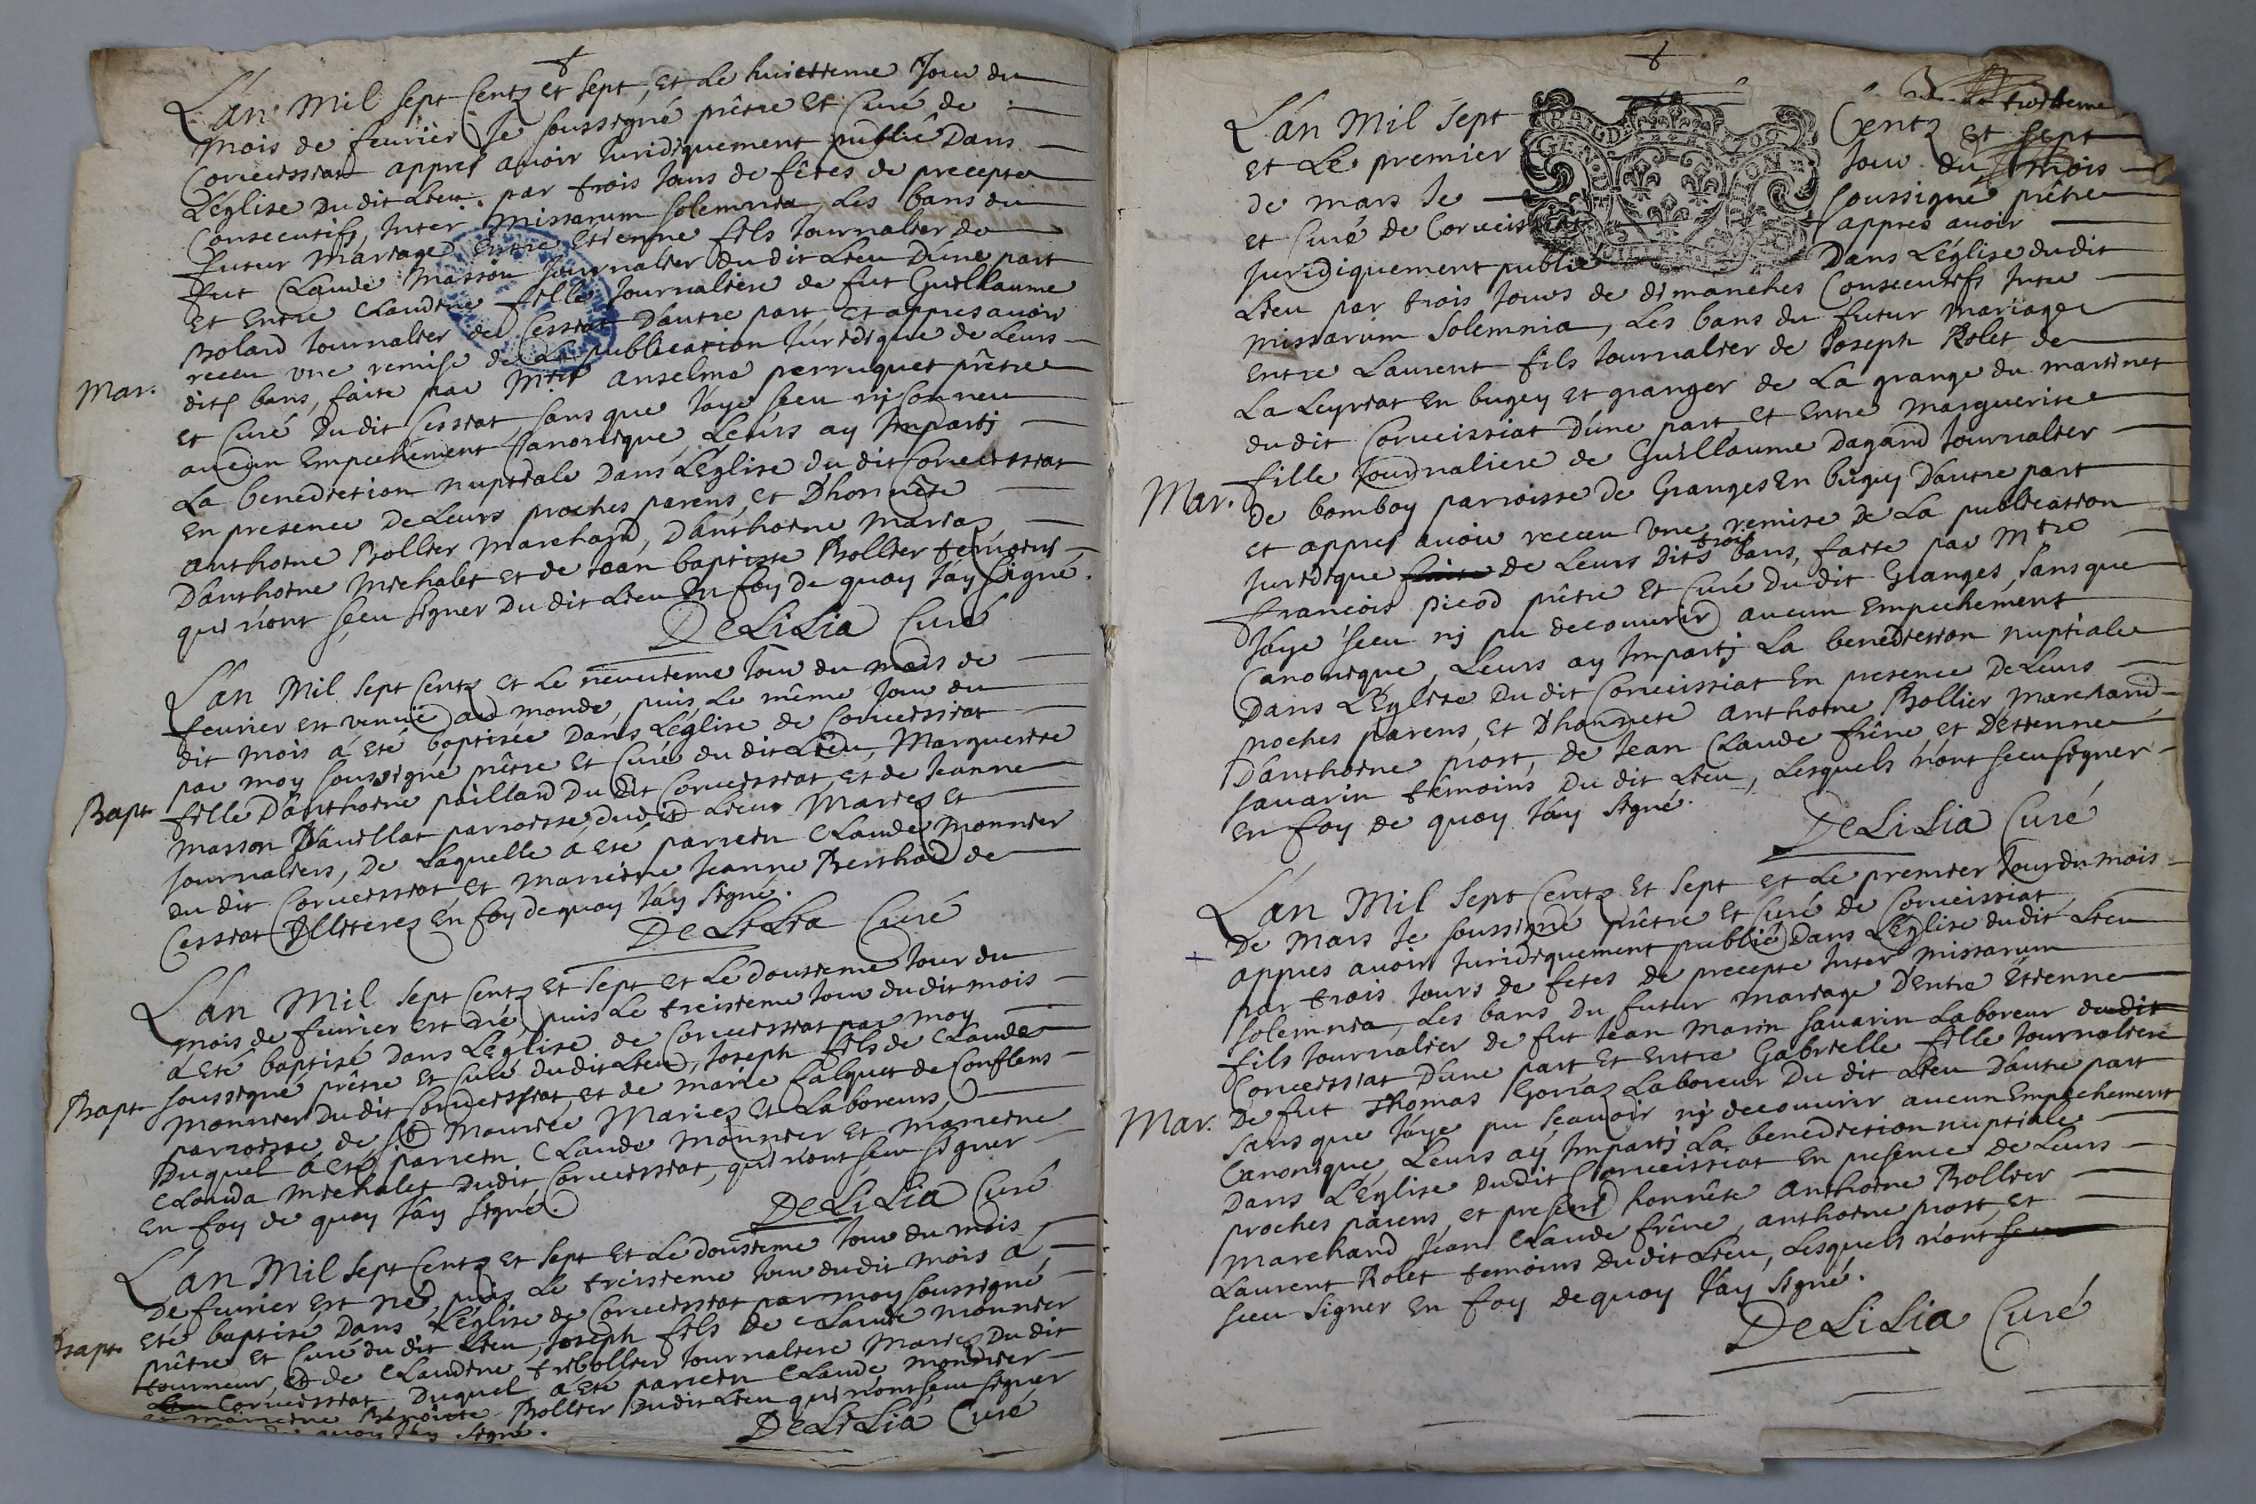 L'án Mil sept Centz et sept, et Le huictieme Jour du
mois de feurier Je soussigné prêtre et Curé de
Corueissiat appres auoir Juridiquement publié Dans
L'église Du dit Lieu par trois Jours de fêtes de precepte
Consecutifs, Inter Missarum solemnia, Les bans du
futur Mariage Entre Etienne fils Journalier de
fut Claude Masson Journalier du dit Lieu D'une part
et Entre Claudine fille Journaliere de fut Guillaume
Bolard Journalier de Cessiat D'autre part et appres auoir
receu vne remise de La publication Juridique de Leurs
dits bans, faite par Mtre anselme perruquet prêtre
Mar.
et Curé Du dit Cessiat, sans que J'aye sceu nj Conneu
aucun Empechément Canonique, Leurs ay Impartj
La benediction nuptiale Dans L'église du dit Corueissiat
En presence De Leurs proches parens, et D'honnête
anthoine Bollier Marchand, D'anthoine Mariaz,
D'anthoine Michalet et de Jean baptiste Bollier temoins
qui n'ont sçeu signer Du dit Lieu En foy de quoy J'ay signé.
DeLiLia Curé
L'án Mil sept Centz et Le neuuieme Jour du mois de
feurier est venuë au monde, puis Le même Jour du
dit mois á eté baptisée Dans L'église de Corueissiat
par moy soussigné prêtre et Curé du dit Lieu, Marguerite
Bapt
fille D'anthoine paillard Du dit Corueissiat, et de Jeanne
Masson D'auillat parroisse dudit Lieu Mariez et
Journaliers, De Laquelle á eté parrein Claude Monnier
du dit Corueissiat et Marreine Jeanne Berthod de
Cessiat Illiterez En foy de quoy J'ay signé.
DeLiLia Curé
L'án Mil sept Centz et sept et Le douzieme Jour du
mois de feurier est né, puis Le treizieme Jour du dit mois
á eté baptisé Dans L'église de Corueissiat par moy
soussigné prêtre et Curé du dit Lieu, Joseph fils de Claude
Bapt
Monnier Du dit Corueissiat et de Marie falquet de Conflens
parroisse de st Mourice Mariez et Laboreurs,
Duquel á eté parrein Claude Monnier et Marreine
Clauda Michalet Du dit Corueissiat, qui n'ont sçeu signer
En foy de quoy J'ay signé.
DeLiLia Curé
L'an Mil sept Centz et sept et Le douzieme Jour du mois
De feurier est né, puis Le treizieme Jour du dit mois á
eté baptisé Dans L'église de Corueissiat par moy soussigné
Bapt.
prêtre et Curé du dit Lieu, Joseph fils de Claude Monnier
tourneur, et de Claudine tribollier Journaliere Mariez Du dit
Corueissiat, Duquel á eté parrein Claude Monnier
marreine Bollier Du dit Lieu qui n'ont sçeu signer
quoy J'ay signé.
DeLiLia Curé
troittieme
L'án Mil sept Centz et sept
et Le premier Jour du mois
de mars Je soussigné prêtre
et Curé De Corueissiat appres auoir
Juridiquement publié Dans L'église du dit
Lieu par trois Jours de dimanches Consecutifs Inter
missarum solemnia, Les bans du futur Mariage
Entre Laurent fils Journalier de Joseph Rolet de
La Leyriat En bugey et granger de La grange du martinet
du dit Corueissiat D'une part, et Entre Marguerite
fille Journaliere de Guillaume Dagand Journalier
Mar.
de bomboy parroisse de Granges En bugey D'autre part
et appres auoir receu vne remise De La publication
Juridique de Leurs Dits trois bans, faite par Mtre
francois picod prêtre et Curé Du dit Granges, sans que
J'aye sceu nj pu decouurir aucun Empechément
Canonique, Leurs ay Impartj La benediction nuptiale
Dans L'Eglise Du dit Corueissiat En presence De Leurs
proches parens, et D'honnete anthoine Bollier Marchand
D'anthoine prost, de Jean Claude frêne, et D'etienne
sauarin temoins Du dit Lieu, Lesquels n'ont sceu signer
En foy de quoy J'ay signé.
DeLiLia Curé
L'án Mil sept Centz et sept et Le premier Jour du mois
De Mars Je soussigné prêtre et Curé de Corueissiat
appres auoir Juridiquement publié Dans L'église du dit Lieu
par trois Jours de fetes De precepte Inter missarum
solemnia, Les bans Du futur Mariage D'entre Etienne
fils Journalier de fut Jean Marin sauarin Laboreur du dit
Corueissiat D'une part et Entre Gabrielle fille Journaliere
De fut Thomas Goriaz Laboreur Du dit Lieu D'autre part
Mar.
sans que J'aye pu sçauoir nj decouurir aucun Empechement
Canonique, Leurs ay Impartj La benediction nuptiale
Dans L'église Du dit Corueissiat En presence De Leurs
proches parens, et present honnête Anthoine Bollier
Marchand, Jean Claude frêne, anthoine prost, et
Laurent Rolet temoins Du dit Lieu, Lesquels n'ont
sceu signer En foy De quoy J'ay signé.
DeLiLia Curé